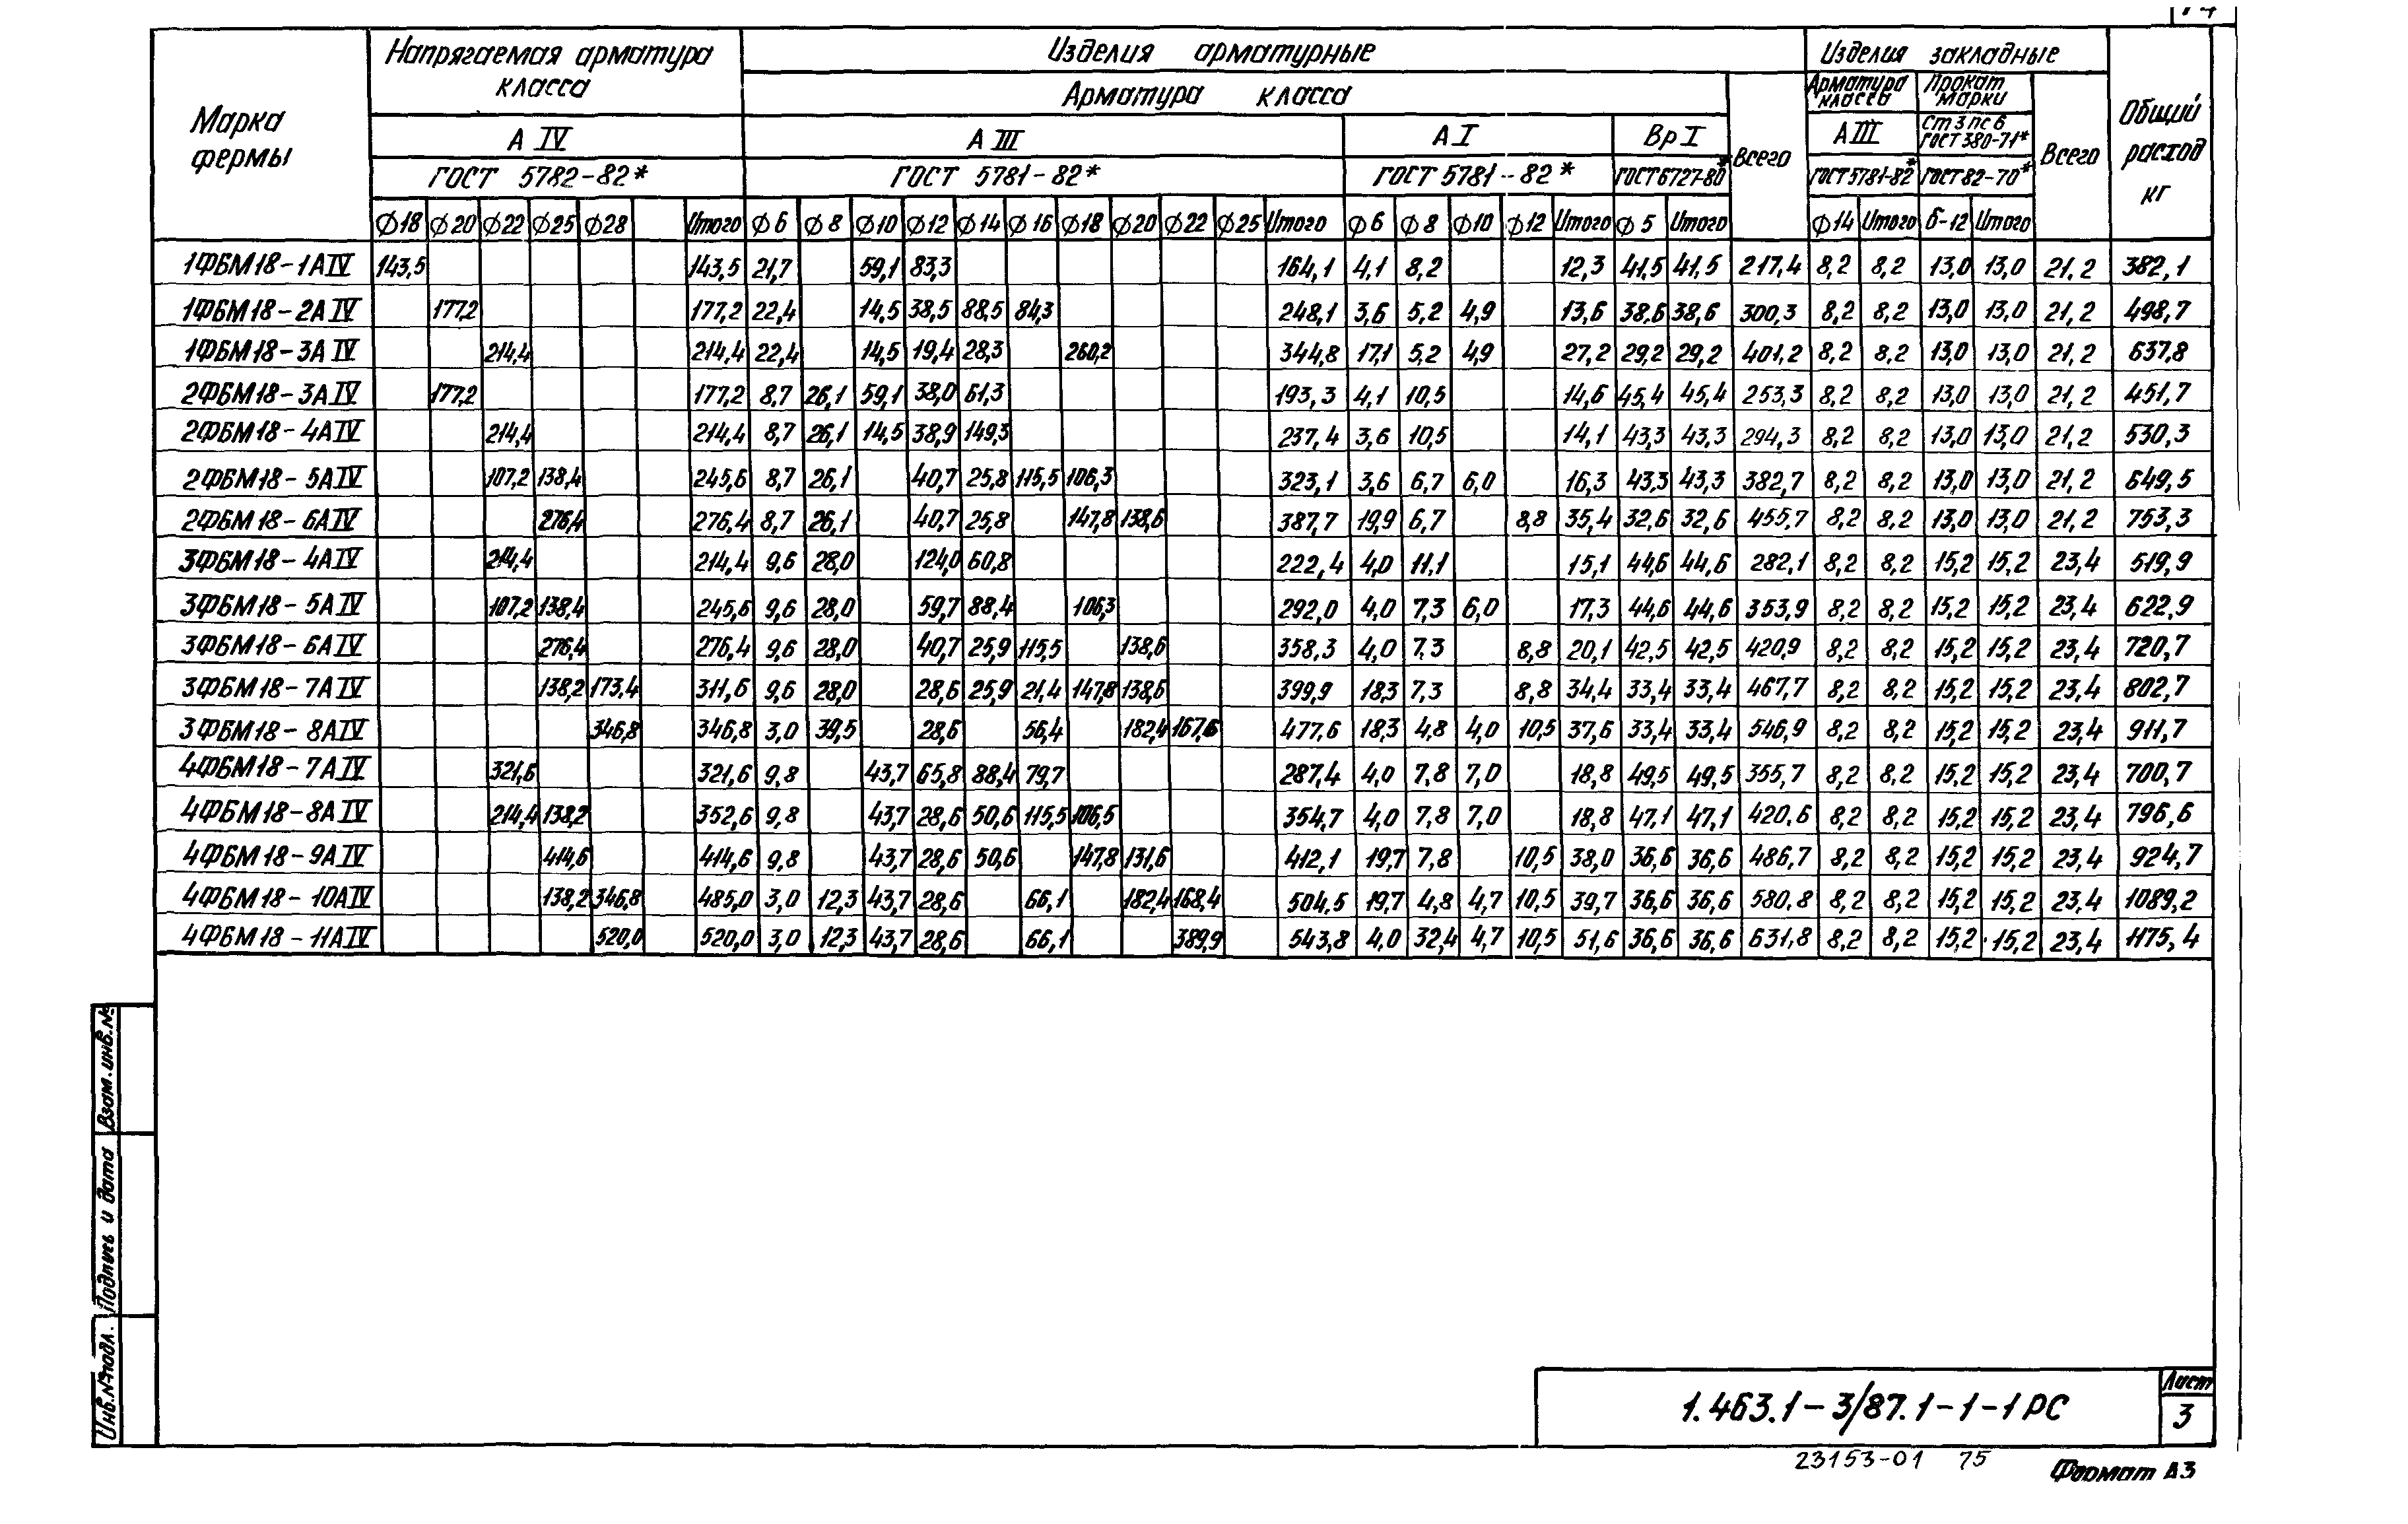 Марка фермы
Напрягаемая арматура класса
Изделия арматурные
Изделия закладные
Общий расход кг
Арматура класса
Всего
Арматура класса
Прокат марки
Всего
А IV
А III
А I
Вр I
А III
Ст 3 пс 6 ГОСТ 380-71*
ГОСТ 5782-82*
ГОСТ 5781-82*
ГОСТ 5781-82*
ГОСТ 6727-80*
ГОСТ 5781-82*
ГОСТ 82-70*
ф18 ф20 ф22 ф25 ф28 Итого ф6 ф8 ф10 ф12 ф14 ф16 ф18 ф20 ф22 ф25 Итого ф6 ф8 ф10 ф12 Итого ф5 Итого ф14 Итого б-12 Итого
1ФБМ18-1АIV 143,5 143,5 21,7 59,1 83,3 164,1 4,1 8,2 12,3 41,5 41,5 217,4 8,2 8,2 13,0 13,0 21,2 382,1
1ФБМ18-2АIV 177,2 177,2 22,4 14,5 38,5 88,5 84,3 248,1 3,6 5,2 4,9 13,6 38,6 38,6 300,3 8,2 8,2 13,0 13,0 21,2 498,7
1ФБМ18-3АIV 214,4 214,4 22,4 14,5 19,4 28,3 260,2 344,8 17,1 5,2 4,9 27,2 29,2 29,2 401,2 8,2 8,2 13,0 13,0 21,2 637,8
2ФБМ18-3АIV 177,2 177,2 8,7 26,1 59,1 38,0 61,3 193,3 4,1 10,5 14,6 45,4 45,4 253,3 8,2 8,2 13,0 13,0 21,2 451,7
2ФБМ18-4АIV 214,4 214,4 8,7 26,1 14,5 38,9 149,3 237,4 3,6 10,5 14,1 43,3 43,3 294,3 8,2 8,2 13,0 13,0 21,2 530,3
2ФБМ18-5АIV 107,2 138,4 245,6 8,7 26,1 40,7 25,8 115,5 106,3 323,1 3,6 6,7 6,0 16,3 43,3 43,3 382,7 8,2 8,2 13,0 13,0 21,2 649,5
2ФБМ18-6АIV 276,4 276,4 8,7 26,1 40,7 25,8 147,8 138,6 387,7 19,9 6,7 8,8 35,4 32,6 32,6 455,7 8,2 8,2 13,0 13,0 21,2 753,3
3ФБМ18-4АIV 214,4 214,4 9,6 28,0 124,0 60,8 222,4 4,0 11,1 15,1 44,6 44,6 282,1 8,2 8,2 15,2 15,2 23,4 519,9
3ФБМ18-5АIV 107,2 138,4 245,6 9,6 28,0 59,7 88,4 106,3 292,0 4,0 7,3 6,0 17,3 44,6 44,6 353,9 8,2 8,2 15,2 15,2 23,4 622,9
3ФБМ18-6АIV 276,4 276,4 9,6 28,0 40,7 25,9 115,5 138,6 358,3 4,0 7,3 8,8 20,1 42,5 42,5 420,9 8,2 8,2 15,2 15,2 23,4 720,7
3ФБМ18-7АIV 138,2 173,4 311,6 9,6 28,0 28,6 25,9 21,4 147,8 138,6 399,9 18,3 7,3 8,8 34,4 33,4 33,4 467,7 8,2 8,2 15,2 15,2 23,4 802,7
3ФБМ18-8АIV 346,8 346,8 3,0 39,5 28,6 56,4 182,4 167,6 477,6 18,3 4,8 4,0 10,5 37,6 33,4 33,4 546,9 8,2 8,2 15,2 15,2 23,4 911,7
4ФБМ18-7АIV 321,6 321,6 9,8 43,7 65,8 88,4 79,7 287,4 4,0 7,8 7,0 18,8 49,5 49,5 355,7 8,2 8,2 15,2 15,2 23,4 700,7
4ФБМ18-8АIV 214,4 138,2 352,6 9,8 43,7 28,6 50,6 115,5 106,5 354,7 4,0 7,8 7,0 18,8 47,1 47,1 420,6 8,2 8,2 15,2 15,2 23,4 796,6
4ФБМ18-9АIV 414,6 414,6 9,8 43,7 28,6 50,6 147,8 131,6 412,1 19,7 7,8 10,5 38,0 36,6 36,6 486,7 8,2 8,2 15,2 15,2 23,4 924,7
4ФБМ18-10АIV 138,2 346,8 485,0 3,0 12,3 43,7 28,6 66,1 182,4 168,4 504,5 19,7 4,8 4,7 10,5 39,7 36,6 36,6 580,8 8,2 8,2 15,2 15,2 23,4 1089,2
4ФБМ18-11АIV 520,0 520,0 3,0 12,3 43,7 28,6 66,1 389,9 543,8 4,0 32,4 4,7 10,5 51,6 36,6 36,6 631,8 8,2 8,2 15,2 15,2 23,4 1175,4
Взам.инв.№
Подпись и дата
Инв.№подл.
1.463.1-3/87.1-1-1РС
Лист
3
23153-01 75
Формат А3